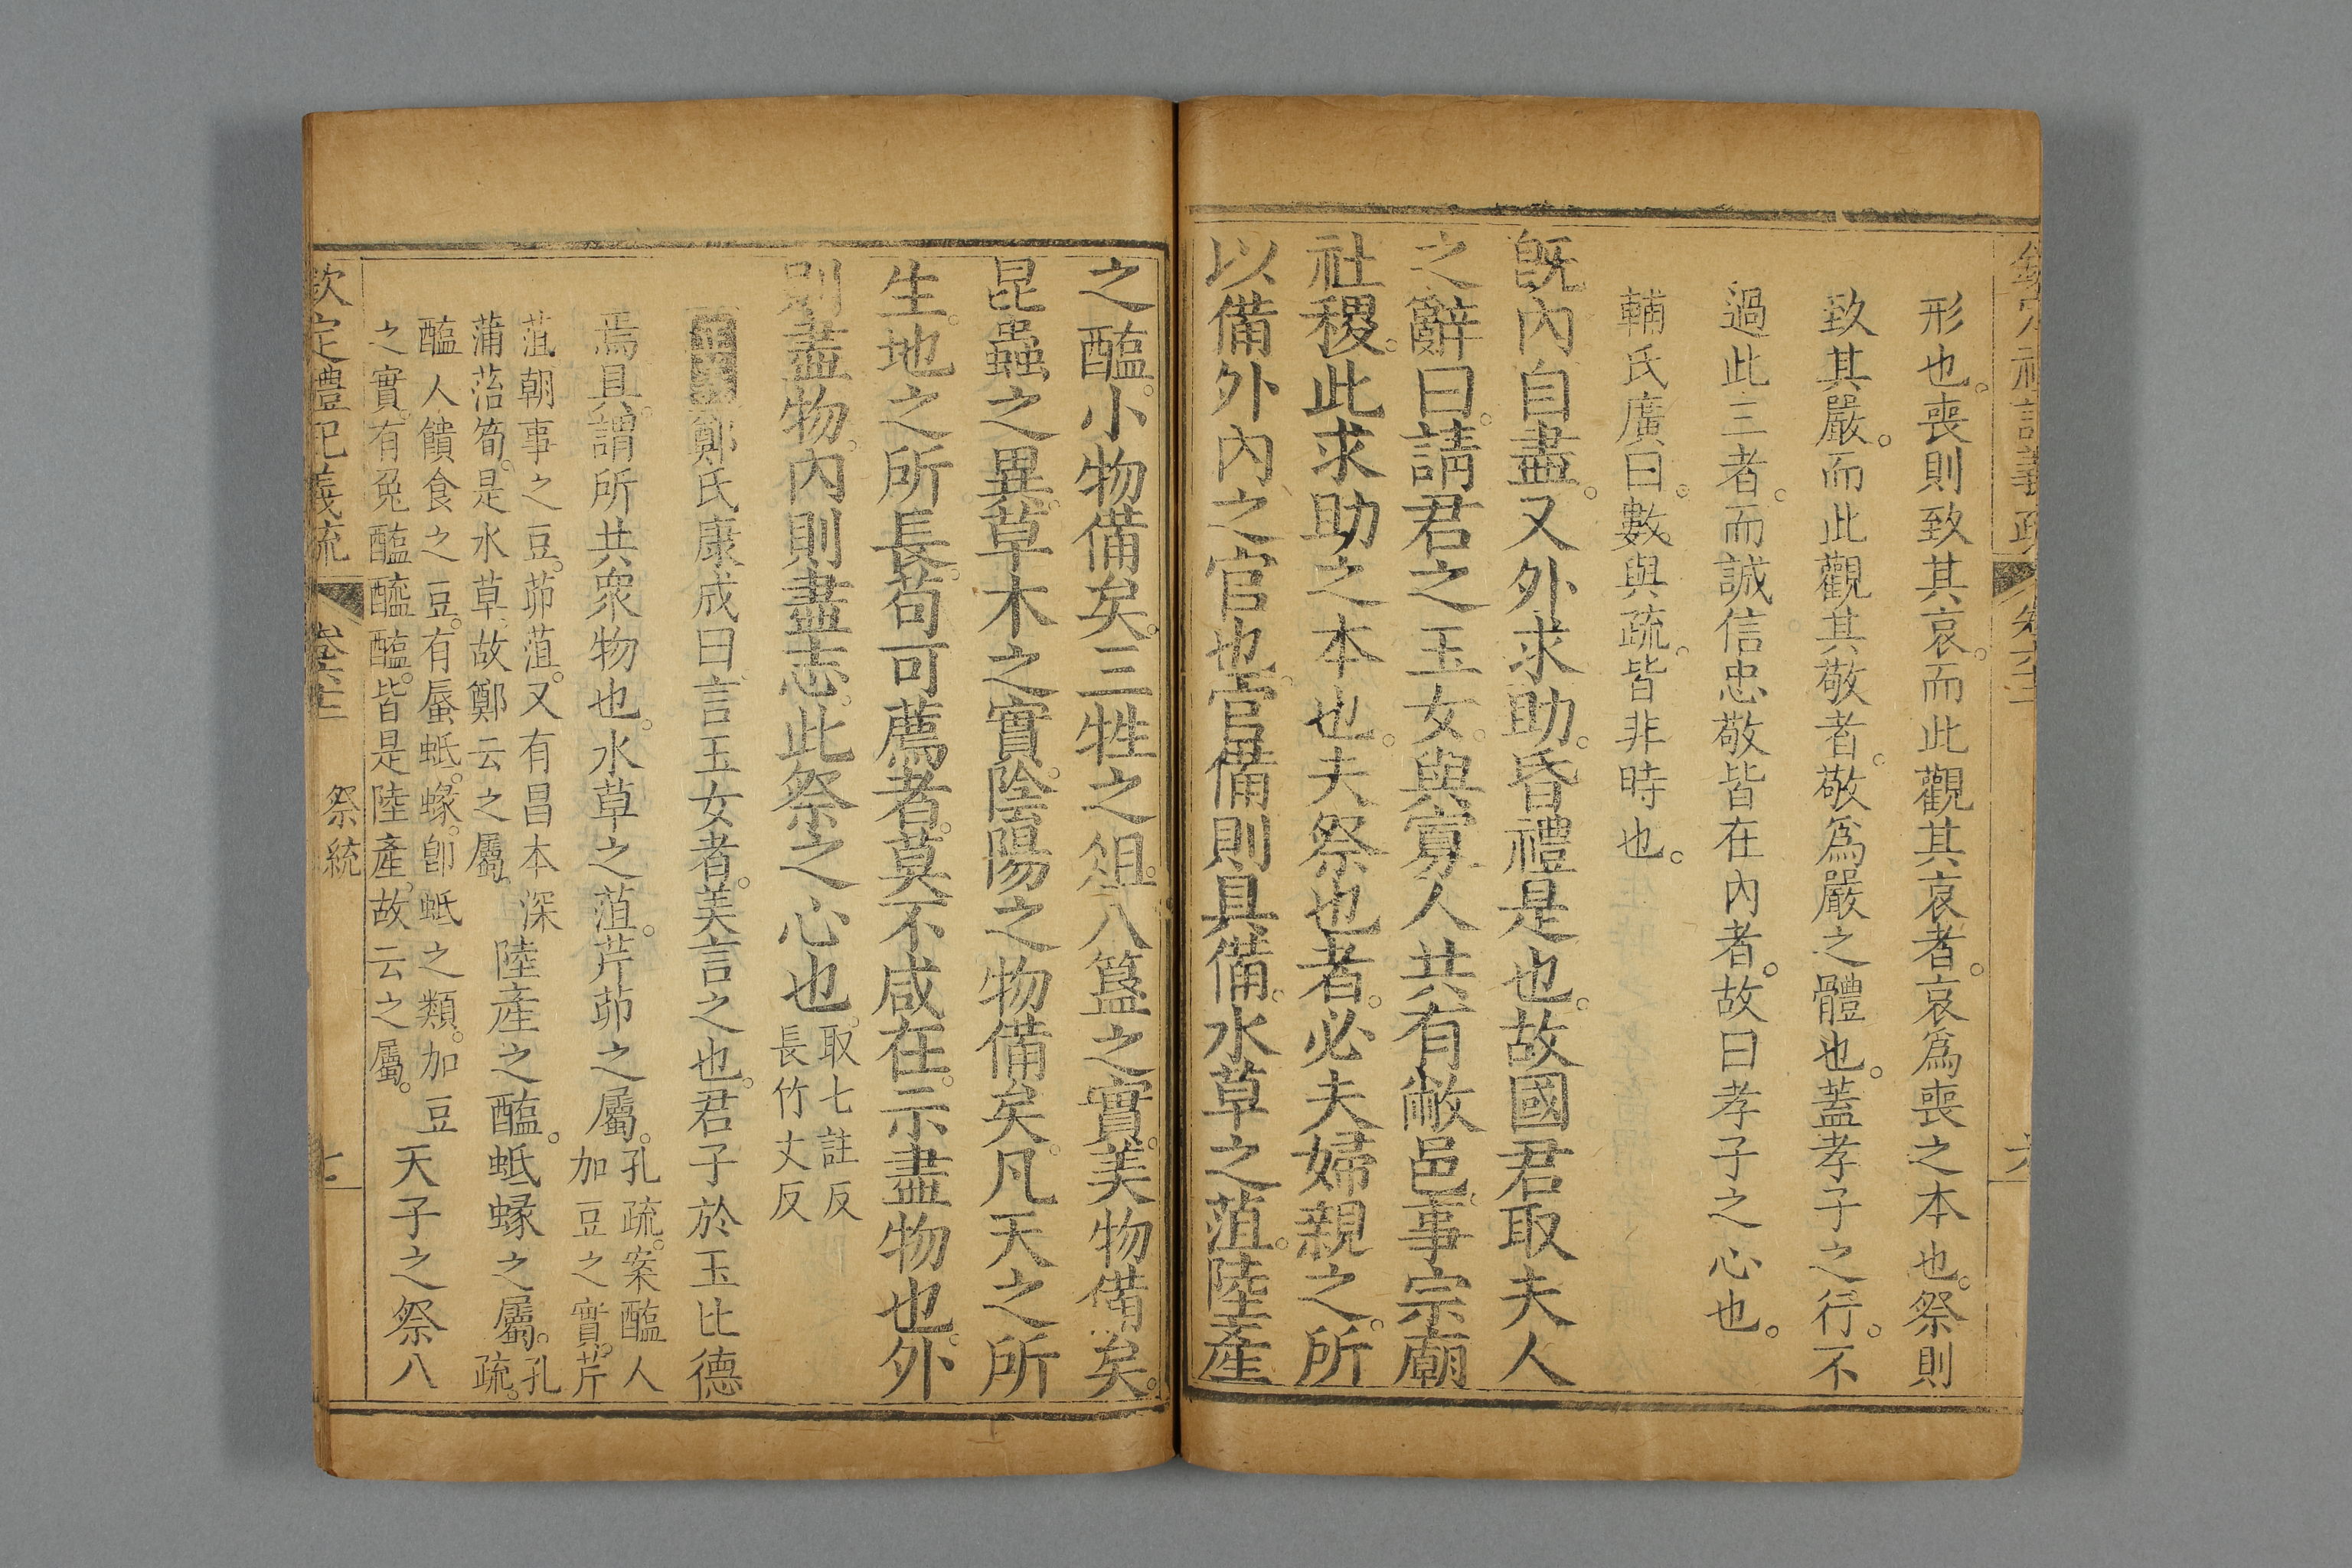 形也。喪則致其哀。而此觀其哀者。哀爲喪之本也。祭則
致其嚴。而此觀其敬者。敬爲嚴之體也。蓋孝子之行。不
過此三者。而誠信忠敬皆在內者。故曰孝子之心也。
輔氏廣曰。數與疏。皆非時也。
旣內自盡。又外求助。昏禮是也。故國君取夫人
之辭曰。請君之玉女。與寡人共有敝邑。事宗廟
社稷。此求助之本也。夫祭也者。必夫婦親之。所
以備外內之官也。官備則具備。水草之菹。陸產
之醢。小物備矣。三牲之俎。八簋之實。美物備矣。
昆蟲之異。草木之實。陰陽之物備矣。凡天之所
生。地之所長。苟可薦者。莫不咸在。示盡物也。外
則盡物。內則盡志。此祭之心也。取七註反
長竹丈反
鄭氏康成曰。言玉女者。美言之也。君子於玉比德
焉。具。謂所共衆物也。水草之菹。芹茆之屬。孔疏。案醢人
加豆之實。芹
菹朝事之豆。茆菹。又有昌本深
蒲菭筍。是水草。故鄭云之屬。陸產之醢。蚳蝝之屬。孔
疏。
醢人饋食之豆。有蜃蚳。蝝。卽蚳之類。加豆
之實。有兔醢醓醢。皆是陸產。故云之屬。天子之祭八
欽定禮記義疏 卷六十二 祭統 七